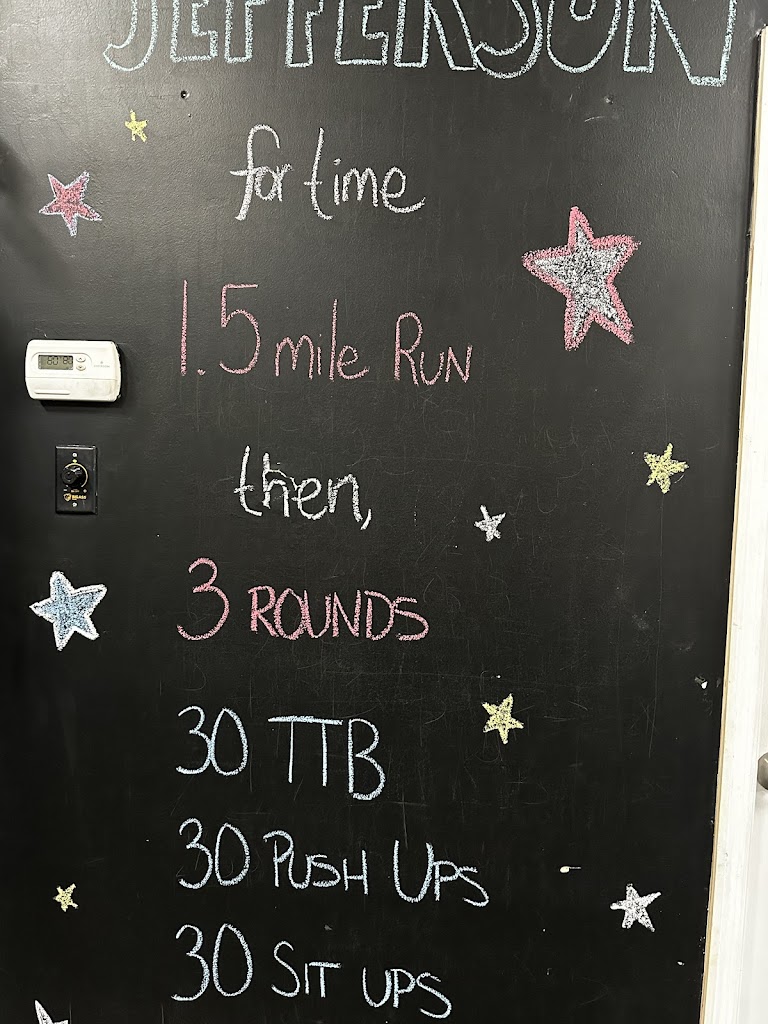 JEFFERSON
for time
1.5 mile RUN
then,
3 ROUNDS
30 TTB
30 PUSH UPS
30 SIT UPS